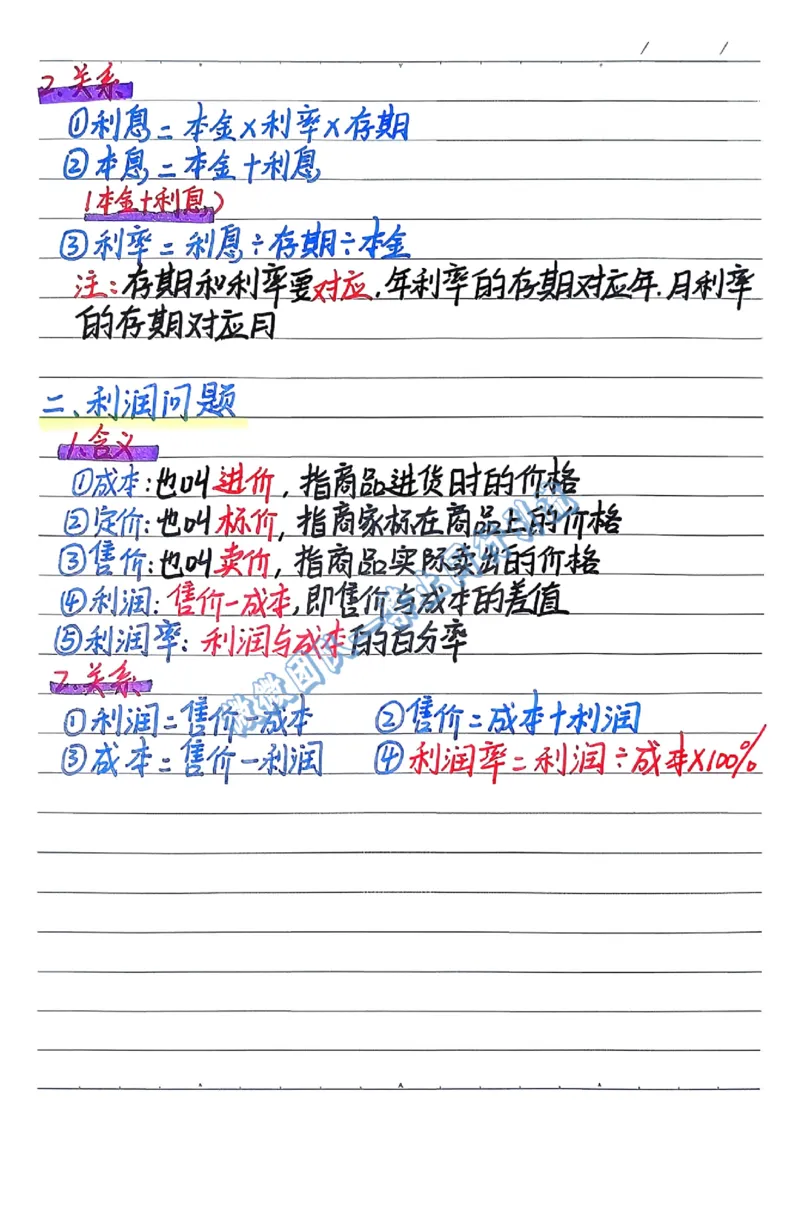 / /
2.关系
①利息=本金×利率×存期
②本息=本金+利息
(本金+利息)
③利率=利息÷存期÷本金
注:存期和利率要对应.年利率的存期对应年.月利率
的存期对应月
二、利润问题
1.含义
①成本:也叫进价,指商品进货时的价格
②定价:也叫标价,指商家标在商品上的价格
③售价:也叫卖价,指商品实际卖出的价格
④利润:售价-成本,即售价与成本的差值
⑤利润率:利润与成本的百分率
2.关系
①利润=售价-成本 ②售价=成本+利润
③成本=售价-利润 ④利润率=利润÷成本×100%
微微团队